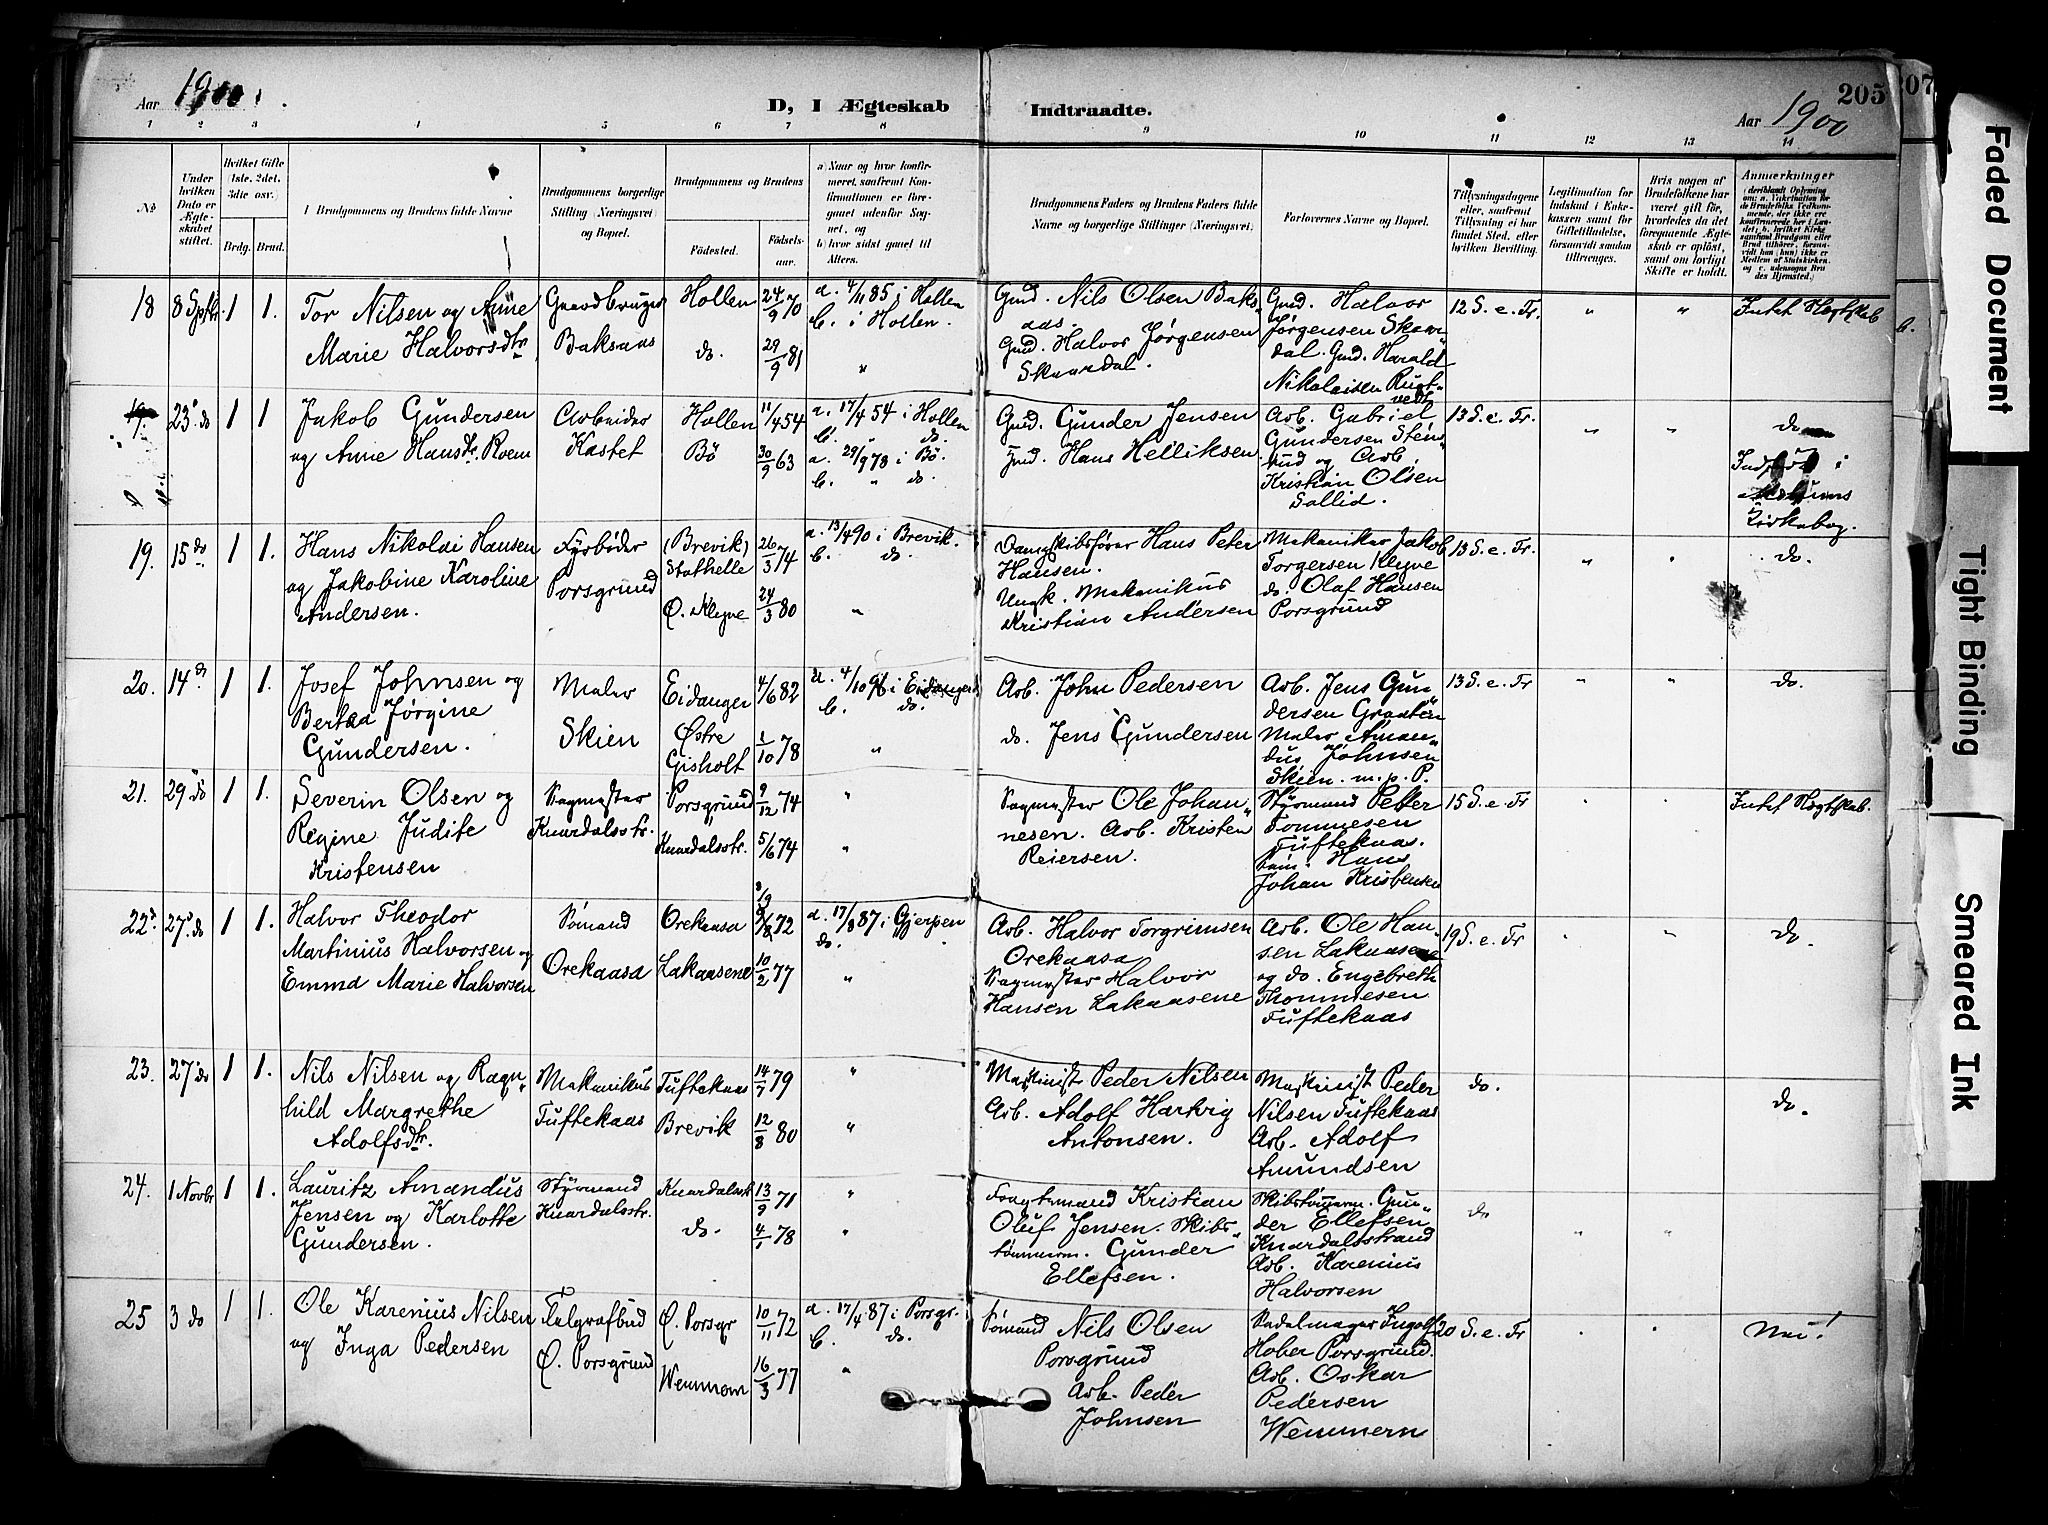 Aar 1900.
D, I Ægteskab
Indtraadte.
Aar 1900
205
07
1 2 3 4 5 6 7 8 9 10 11 12 13 14
No
Under hvilken Dato er Ægteskabet stiftet.
Hvilket Gifte (1ste. 2det. 3die osv.)
Brdg. Brud.
I Brudgommens og Brudens fulde Navne
Brudgommens borgerlige Stilling (Næringsvei) og Bopæl.
Brudgommens og Brudens
Fødested.
Fødselsaar.
a) Naar og hvor konfirmeret, saafremt Konfirmationen er foregaaet udenfor Sognet, og
b) hvor sidst gaaet til Alters.
Brudgommens Faders og Brudens Faders fulde Navne og borgerlige Stillinger (Næringsvei).
Forlovernes Navne og Bopæl.
Tillysningsdagene eller, saafremt Tillysning ei har fundet Sted, efter hvilken Bevilling.
Legitimation for Indskud i Enkekassen samt for Giftetilladelse, forsaavidt saadan tiltrænges.
Hvis nogen af Brudefolkene har været gift før, hvorledes da det foregaaende Ægteskab er opløst, samt om lovligt Skifte er holdt.
Anmærkninger
18 8 Septbr. 1 1. Tor Nilsen og Anne Marie Halvorsdtr. Gaardbruger Baksaas Hollen do. 24/9 70 29/9 81 a. 4/11 85 i Hollen b. i Hollen. " Gmd. Nils Olsen Baksaas. Gmd. Halvor Jørgensen Skaardal. Gmd. Halvor Jørgensen Skaardal. Gmd. Harald Nikolaisen Rugtvedt 12 S. e. Tr. " " Intet Slægtskab
19. 23 do 1 1 Jakob Gundersen og Anne Hansdtr. Roem Arbeider Kastet Hollen Bø 11/4 54 30/9 63 a. 17/4 54 i Hollen b. " do. a. 29/9 78 i Bø. b. " do Gmd. Gunder Jensen Gmd. Hans Helliksen Arb. Gabriel Gundersen Stensrud og Arb. Kristian Olsen Sallid. 13 S. e. Tr. " " do Indført i Mælums Kirkebog.
19. 15 do 1 1. Hans Nikolai Hansen og Jakobine Karoline Andersen. Fyrbøder Porsgrund (Brevik) Stathelle Ø. Klyve 26/3 74 24/3 80 a. 13/4 90 i Brevik. b. do. " Dampskibsfører Hans Peter Hansen. Ungk. Mekanikus Kristian Andersen Mekaniker Jakob Torgersen Klyve do. Olaf Hansen Porsgrund 13 S. e. Tr. " " do.
20. 14 do 1 1. Josef Johnsen og Bertha Jørgine Gundersen. Maler Skien Eidanger Østre Gisholt 4/6 82 1/10 78 a. 4/10 96 i Eidanger b. do. " Arb. John Pedersen do. Jens Gundersen Arb. Jens Gundersen Graaten Maler Amandus Johnsen Skien. m. p. P. 13 S. e. Tr " " do.
21. 29 do 1 1. Severin Olsen og Regine Judite Kristensen Sagmester Knardalsstr. Porsgrund Knardalsstr. 9/12 74 5/6 74 " " Sagmester Ole Johannesen. Arb. Kristen Reiersen. Styrmand Petter Tommesen Tuftekaas. Tøm. Hans Johan Kristensen 15 S. e. Tr Intet Slægtskab.
22. 27 do 1 1. Halvor Theodor Martinius Halvorsen og Emma Marie Halvorsen Sømand Orekaasa Orekaasa Lakaasene 72 10/2 77 a. 17/8 87 i Gjerpen do. " Arb. Halvor Torgrimsen Orekaasa Sagmester Halvor Hansen Lakaasene Arb. Ole Hansen Lakaasene og do. Engebreth Thommesen Tuftekaas 19 S. e. Tr do.
23. 27 do 1 1. Nils Nilsen og Ragnhild Margrethe Adolfsdtr. Mekanikus Tuftekaas Tuftekaas Brevik 14/7 79 12/8 80 " " Maskinist Peder Nilsen Arb. Adolf Hartvig Antonsen. Maskinist Peder Nilsen Tuftekaas Arb. Adolf Amundsen do. do.
24. 1 Novbr 1 1. Lauritz Amandus Jensen og Karlotte Gundersen. Styrmand Knardalsstr. Knardalsstr do. 13/9 71 4/1 78 " " Fragtemand Kristian Oluf Jensen. Skibstømmerm. Gunder Ellefsen. Skibstømmerm. Gunder Ellefsen Knardalsstrand Arb. Karenius Halvorsen do " "
25 3 do 1 1. Ole Karenius Nilsen og Inga Pedersen Telgrafbud Ø. Porsgrund Ø. Porsgr Wemmern 10/11 72 16/3 77 a. 17/4 87 i Porsgr. b. do. " Sømand Nils Olsen Porsgrund Arb. Peder Johnsen Sadelmager Ingolf Hober Porsgrund. Arb. Oskar Pedersen Wemmern 20 S. e. Tr Nei!
Faded Document
Tight Binding
Smeared Ink